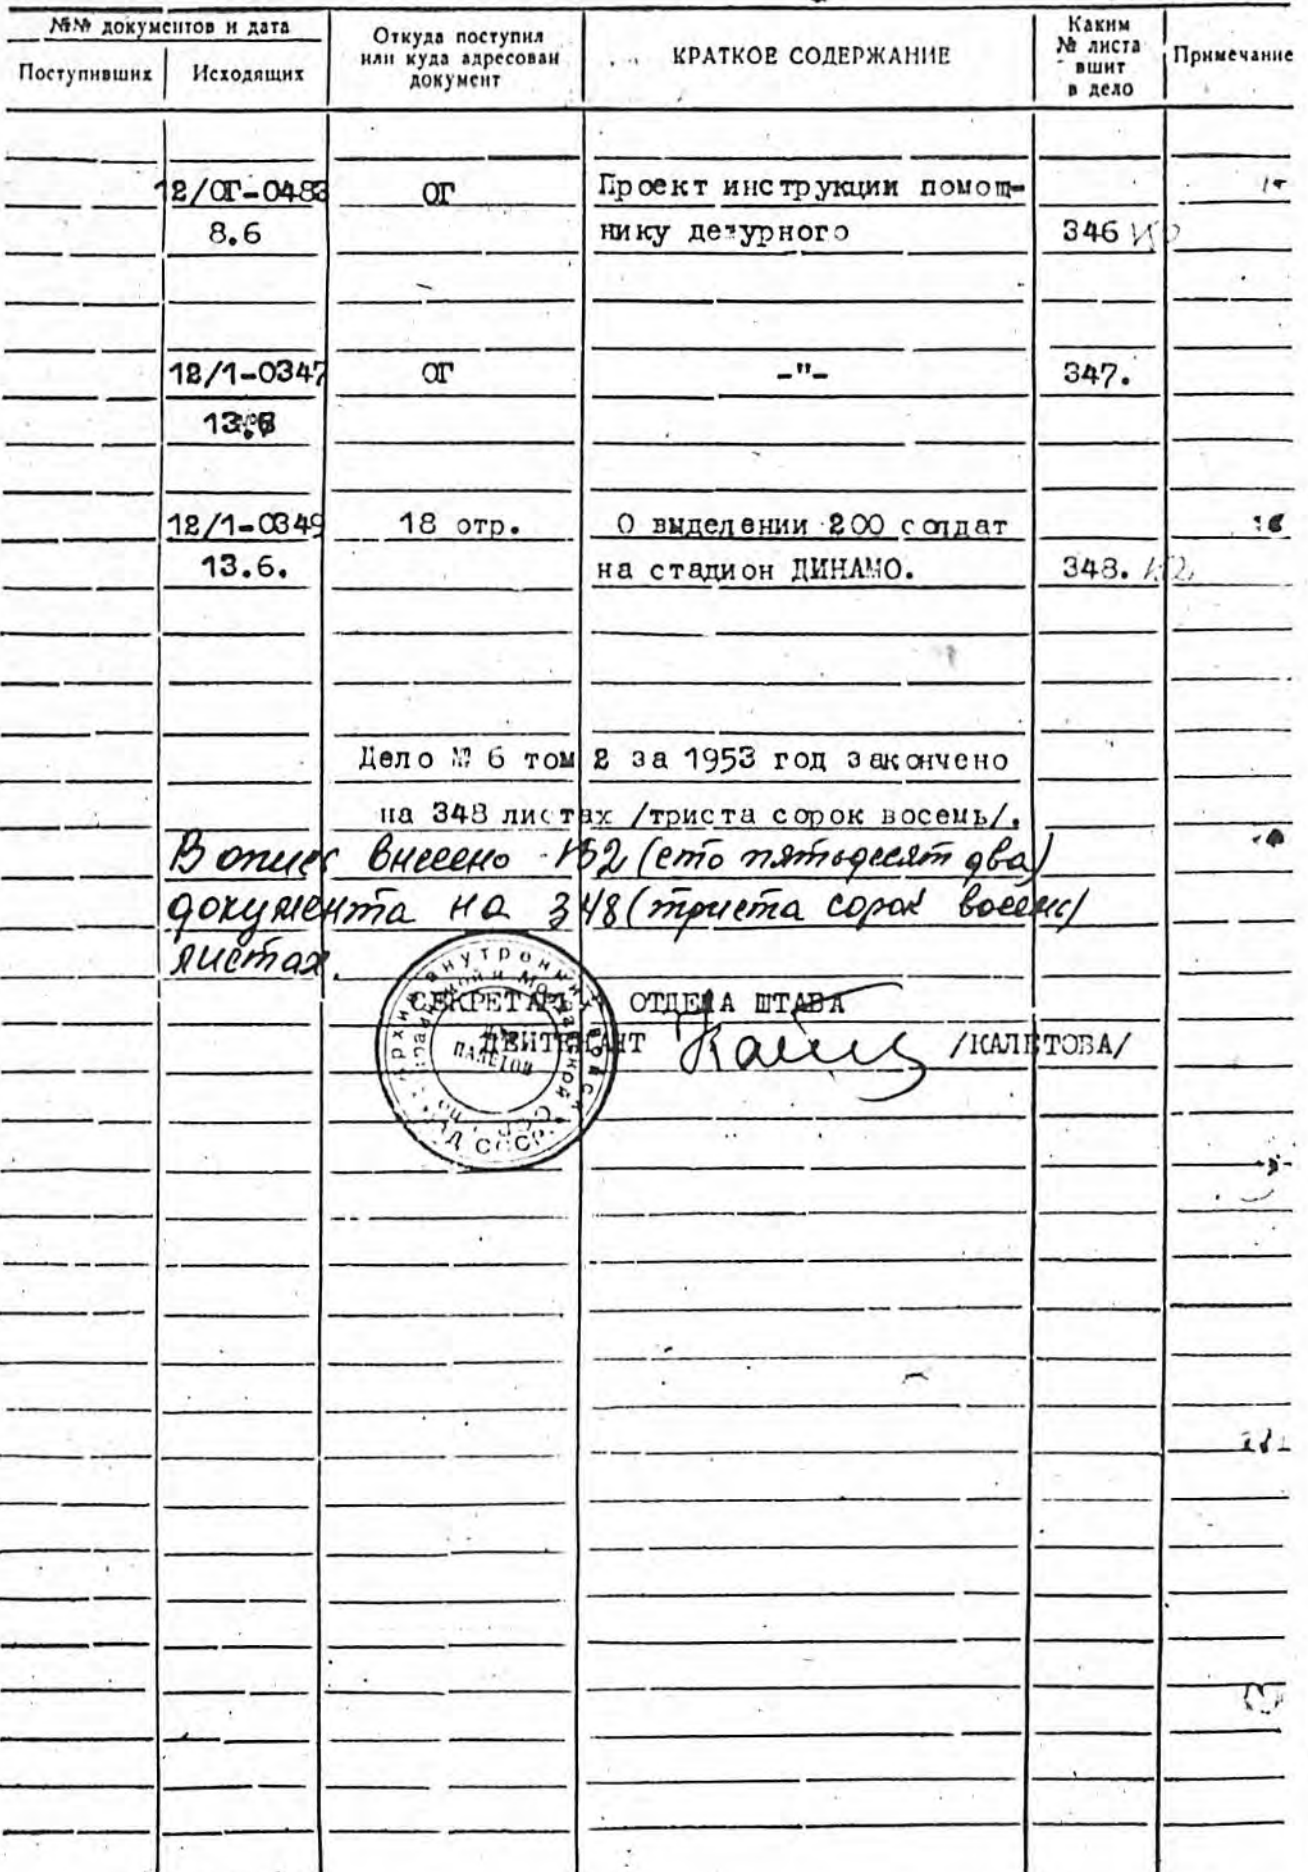 №№ документов и дата
Поступивших
Исходящих
Откуда поступил
или куда адресован
документ
КРАТКОЕ СОДЕРЖАНИЕ
Каким
№ листа
вшит
в дело
Примечание
12/ОГ-0483 ОГ Проект инструкции помощ-
8.6 нику дежурного 346
12/1-0347 ОГ -"- 347.
12/1-0349 18 отр. О выделении 200 солдат
13.6. на стадион ДИНАМО. 348.
Дело № 6 том 2 за 1953 год закончено
на 348 листах /триста сорок восемь/.
В опись внесено 152 (сто пятьдесят два)
документа на 348 (триста сорок восемь)
листах.
СЕКРЕТАРЬ ОТДЕЛА ШТАБА
ЛЕЙТЕНАНТ /КАЛЕТОВА/